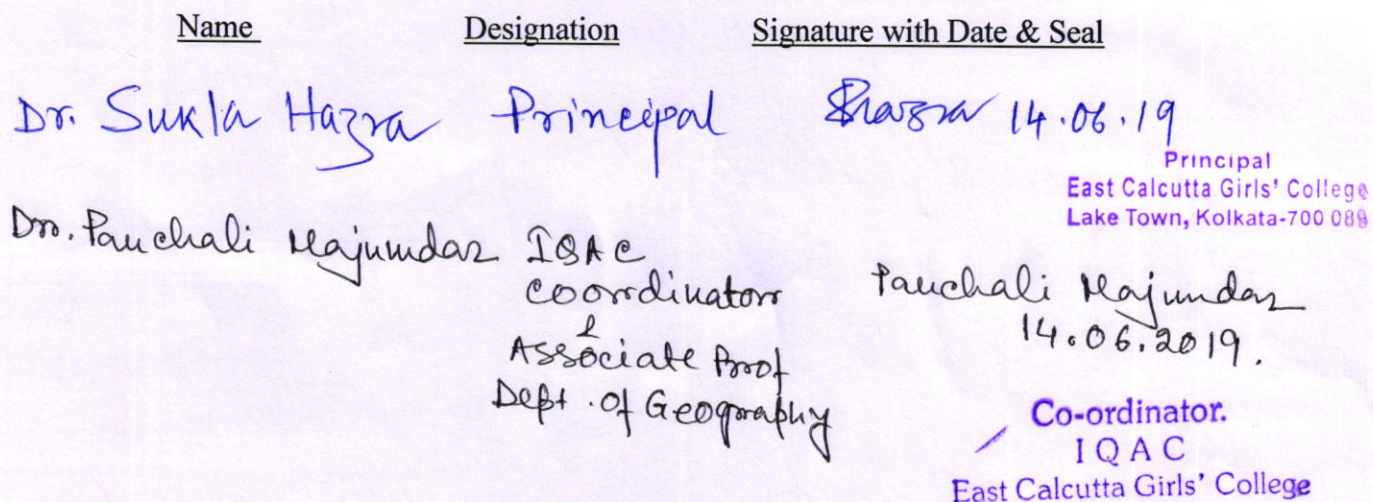 Name Designation Signature with Date & Seal
Dr. Sukla Hazra Principal SHazra 14.06.19
Principal
East Calcutta Girls' College
Lake Town, Kolkata-700 089
Dr. Panchali Majumdar IQAC
coordinator
&
Associate Prof
Dept. of Geography
Panchali Majumdar
14.06.2019.
Co-ordinator.
I Q A C
East Calcutta Girls' College